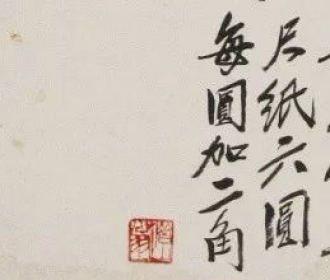 尺紙六圓
每圓加二角